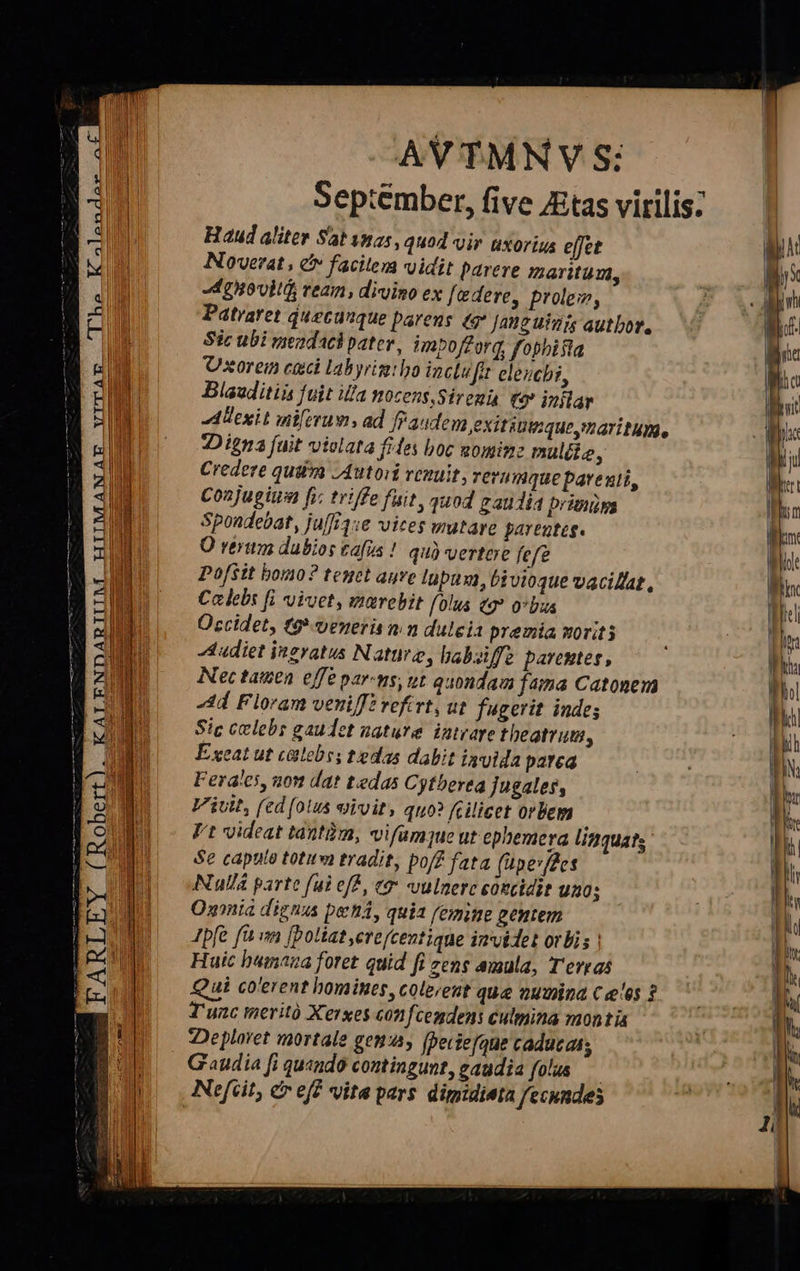 FARLEY (Robert). KALENDARIUM HUMANAE VITAE The Kalender of
AVTMNVS:
September, five Ætas virilis.
Haud aliter Satanas, quod vir uxorius esset
Noverat, & facilem vidit parere maritum,
Agnovitq; ream, divino ex fœdere, prolem,
Patraret quæcunque parens & sanguinis author.
Sic ubi mendaci pater, impostorq; sophista
Uxorem cæci labyrintho inclusit elenchi,
Blanditiis fuit illa nocens, Sirenis & instar
Allexit miserum, ad fraudem, exitiumque, maritum.
Digna fuit violata fides hoc nomine mulcta,
Credere quùm Autori renuit, rerumque parenti,
Conjugium sic triste fuit, quod gaudia primùm
Spondebat, jussique vices mutare parentes.
O rerum dubios casus! quò vertere sese
Possit homo? tenet aure lupum, bivioque vacillat,
Cælebs si vivet, mærebit solus & orbus
Occidet, & veneris non dulcia præmia norit;
Audiet ingratus Naturæ, habuisse parentes,
Nec tamen esse parens; ut quondam fama Catonem
Ad Floram venisse refert, ut fugerit inde;
Sic cælebs gaudet naturæ intrare theatrum,
Exeat ut cælebs; tædas dabit invida parca
Ferales, non dat tædas Cytherea jugales,
Vivit, sed solus vivit, quo? scilicet orbem
Vt videat tantùm, visumque ut ephemera linquat;
Se capulo totum tradit, post fata superstes
Nullâ parte sui est, & vulnere concidit uno;
Omnia dignus pœnâ, quia semine gentem
Ipse suum spoliat, crescentique invidet orbi;
Huic humana foret quid si gens æmula, Terras
Qui colerent homines, colerent quæ numina Cœlos?
Tunc meritò Xerxes conscendens culmina montis
Deploret mortale genus, speciesque caducas;
Gaudia si quando contingunt, gaudia solus
Nescit, & est vitæ pars dimidiata secundæ;